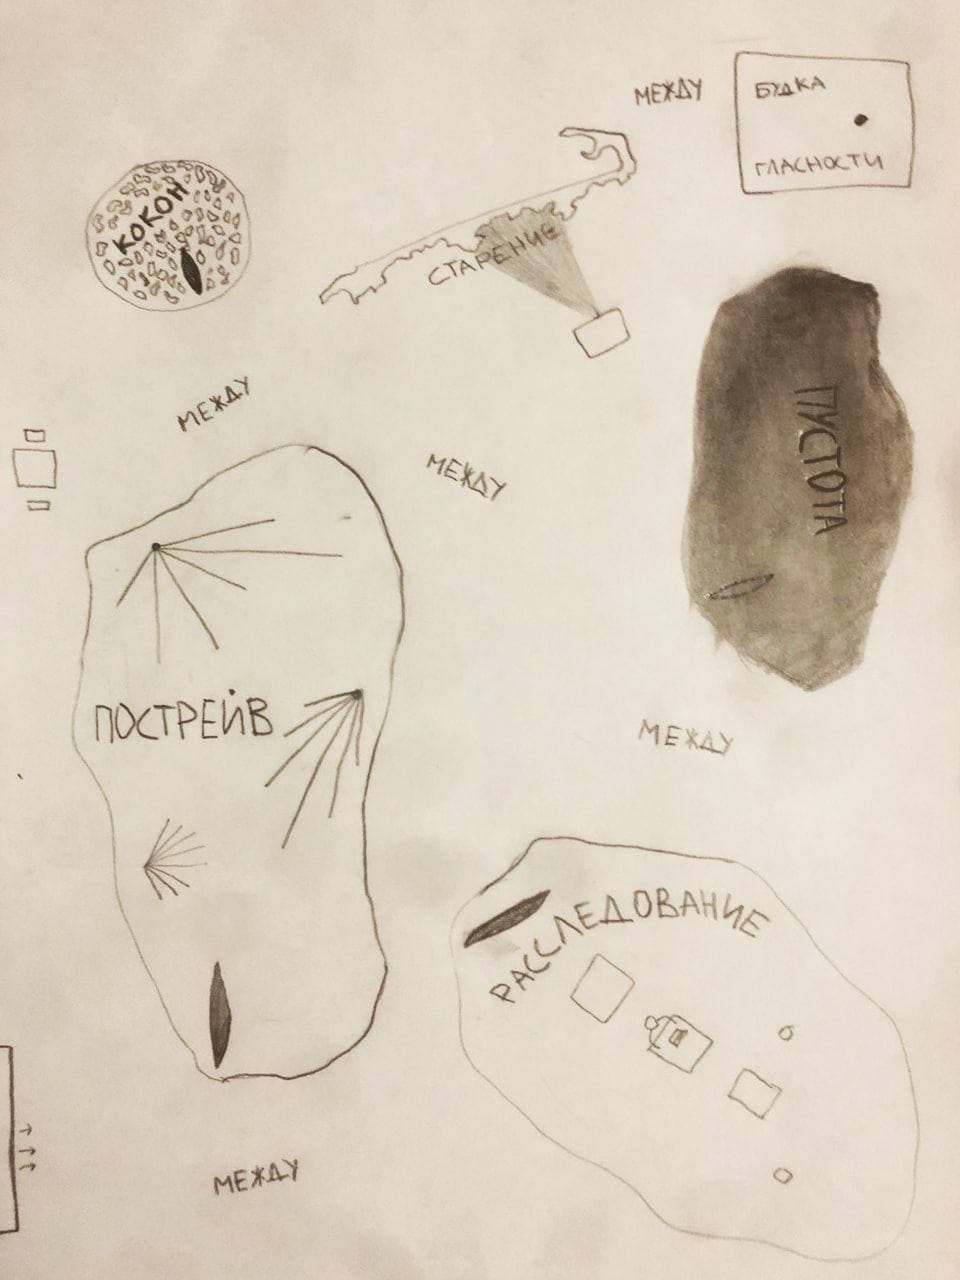 МЕЖДУ
БУДКА
ГЛАСНОСТИ
КОКОН
СТАРЕНИЕ
МЕЖДУ
МЕЖДУ
ПУСТОТА
ПОСТРЕЙВ
МЕЖДУ
РАССЛЕДОВАНИЕ
МЕЖДУ